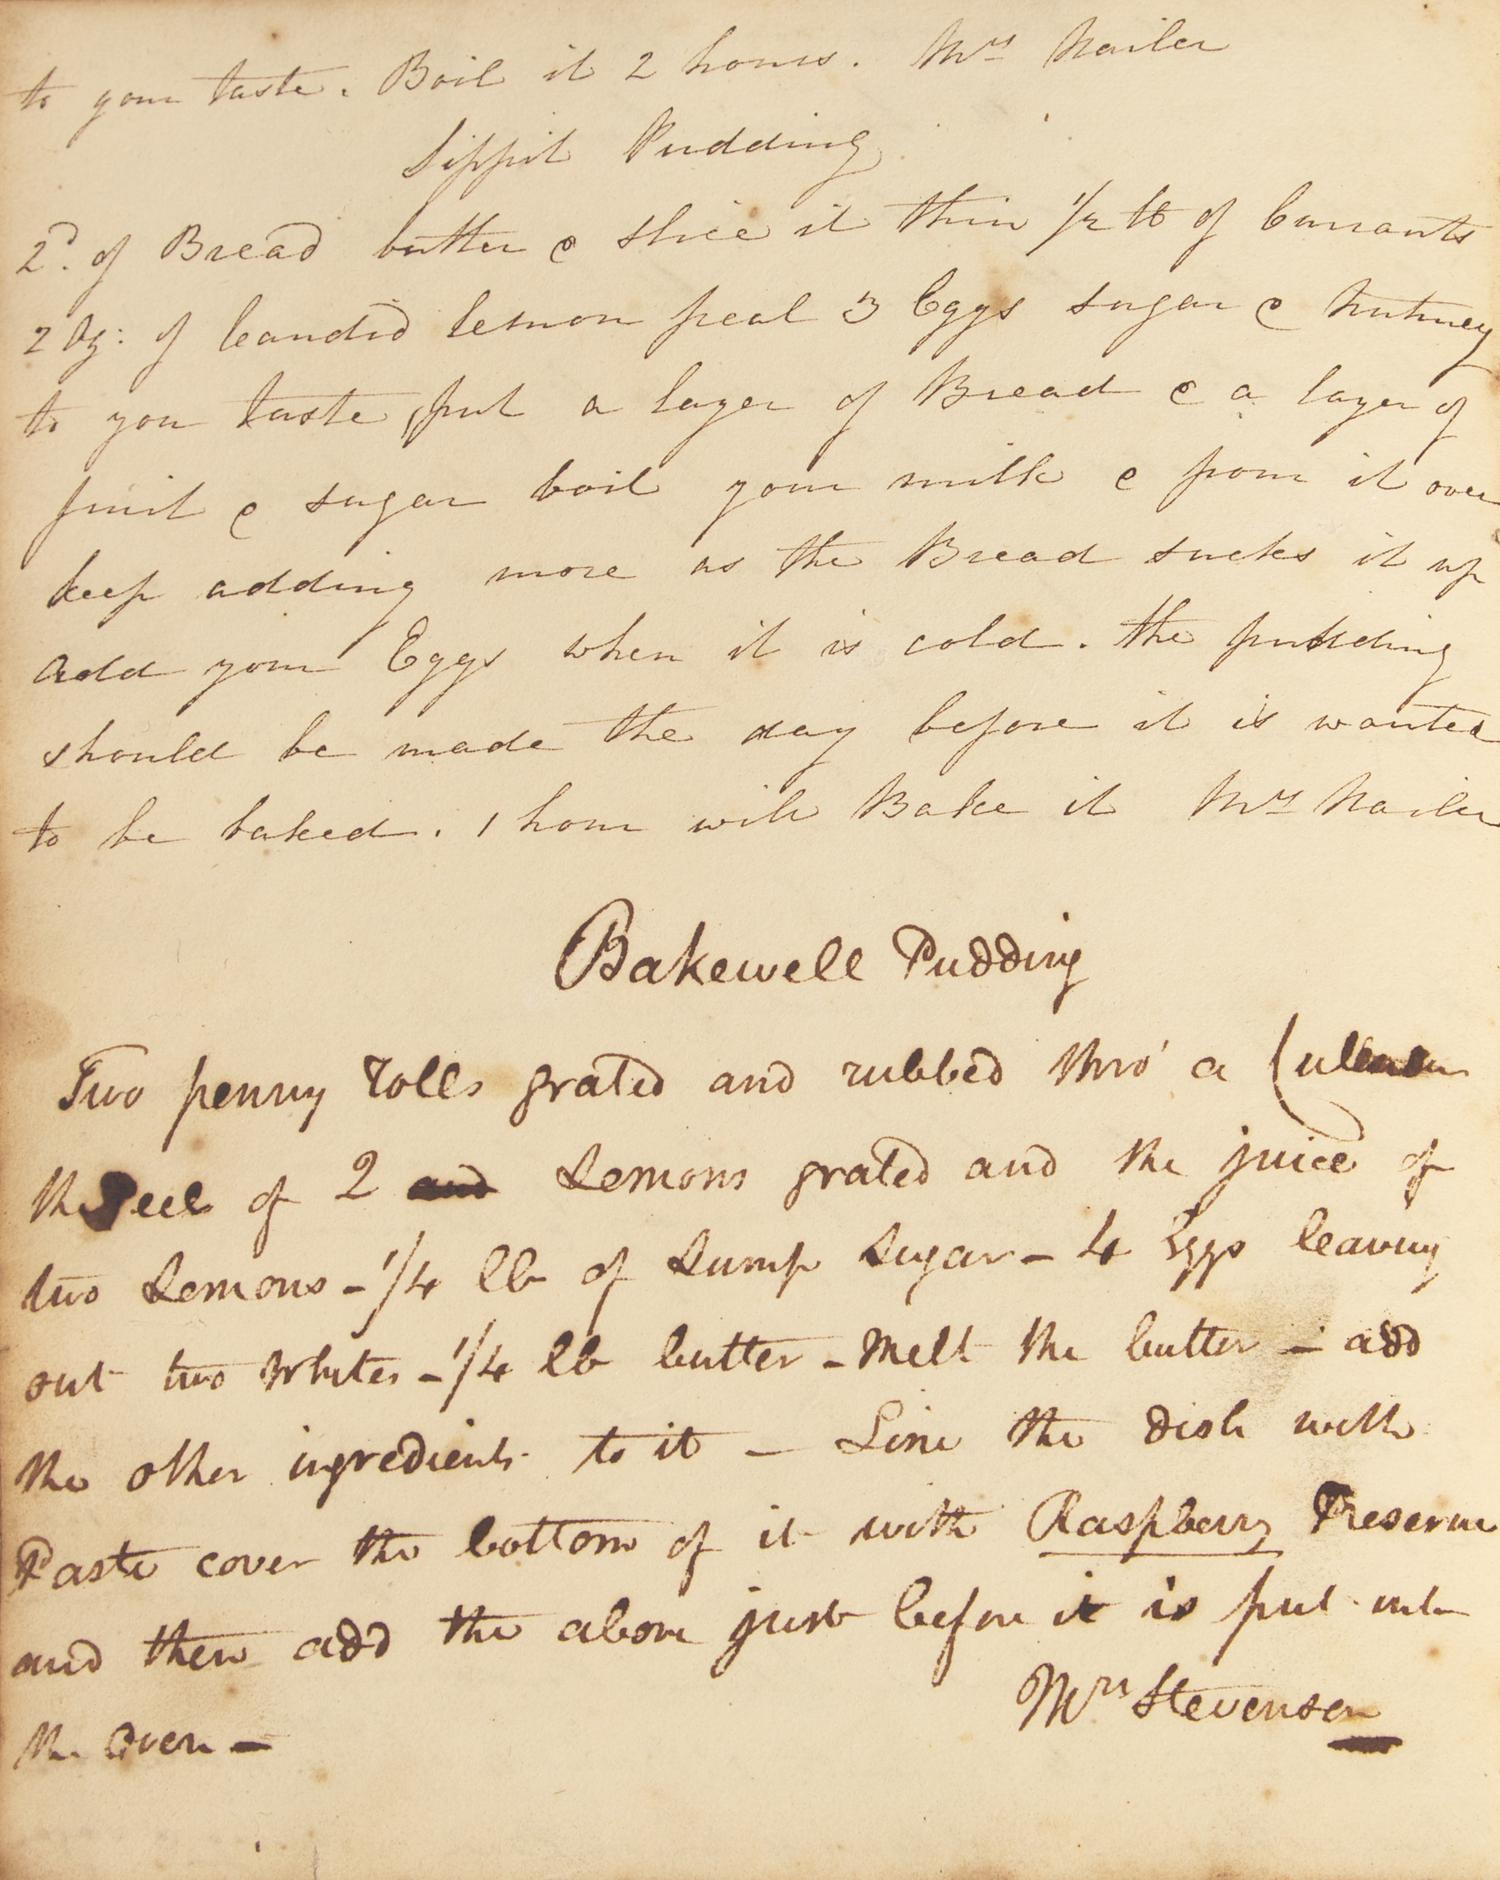 to your taste. Boil it 2 hours. Mrs Nailer
Sippit Pudding
2d. of Bread butter & slice it thin 1/2 lb of Currants
2 Oz: of Candid lemon peal 3 Eggs sugar & Nutmeg
to you taste, put a layer of Bread & a layer of
fruit & sugar boil your milk & pour it over
keep adding more as the Bread sucks it up
add your Eggs when it is cold. the pudding
should be made the day before it is wanted
to be baked. 1 hour will Bake it Mrs Nailer
Bakewell Pudding
Two penny rolls grated and rubbed thro' a Cullender
the Peel of 2 and Lemons grated and the juice of
two Lemons - 1/4 lb of Lump Sugar - 4 Eggs leaving
out two Whites - 1/4 lb butter - Melt the butter - add
the other ingredients to it - Line the dish with
Paste cover the bottom of it with Raspberry Preserve
and then add the above just before it is put into
the Oven -
Mrs Stevenson